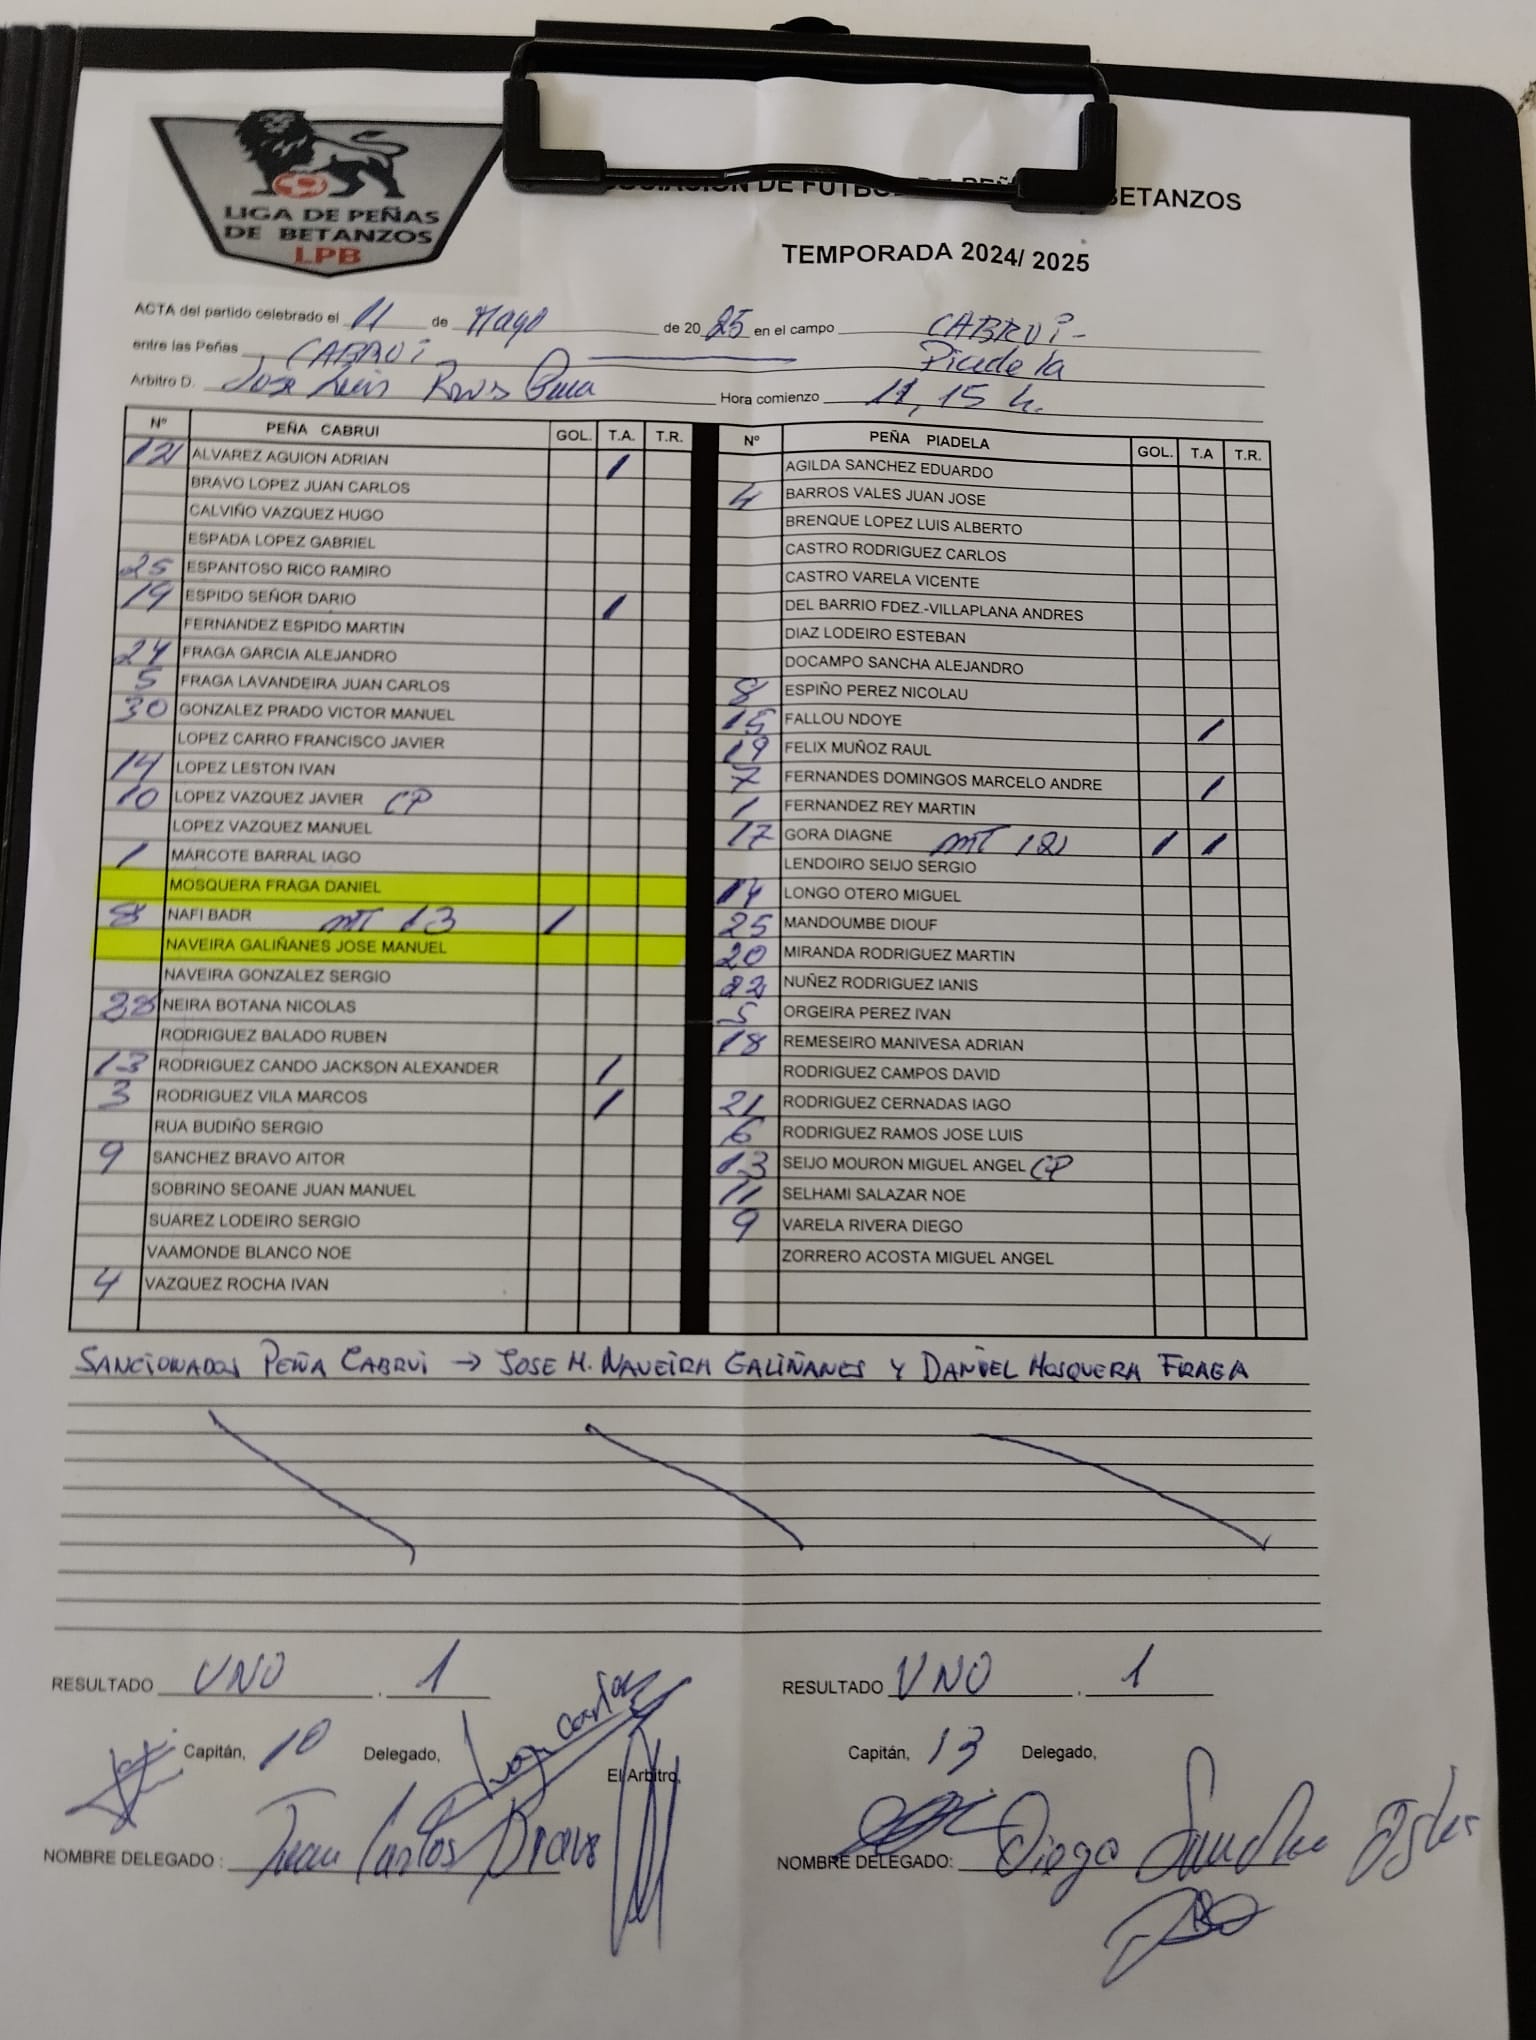 LIGA DE PEÑAS
DE BETANZOS
LPB
DE BETANZOS
TEMPORADA 2024/ 2025
ACTA del partido celebrado el 11 de Mayo de 2025 en el campo CABRUI -
entre las Peñas CABRUI Piadela
Arbitro D. Jose Luis Hora comienzo 11,15 h.
Nº PEÑA CABRUI GOL. T.A. T.R. Nº PEÑA PIADELA GOL. T.A T.R.
12 ALVAREZ AGUION ADRIAN 1 AGILDA SANCHEZ EDUARDO
BRAVO LOPEZ JUAN CARLOS 4 BARROS VALES JUAN JOSE
CALVIÑO VAZQUEZ HUGO BRENQUE LOPEZ LUIS ALBERTO
ESPADA LOPEZ GABRIEL CASTRO RODRIGUEZ CARLOS
25 ESPANTOSO RICO RAMIRO CASTRO VARELA VICENTE
19 ESPIDO SEÑOR DARIO 1 DEL BARRIO FDEZ.-VILLAPLANA ANDRES
FERNANDEZ ESPIDO MARTIN DIAZ LODEIRO ESTEBAN
24 FRAGA GARCIA ALEJANDRO DOCAMPO SANCHA ALEJANDRO
5 FRAGA LAVANDEIRA JUAN CARLOS 8 ESPIÑO PEREZ NICOLAU
30 GONZALEZ PRADO VICTOR MANUEL 15 FALLOU NDOYE 1
LOPEZ CARRO FRANCISCO JAVIER 19 FELIX MUÑOZ RAUL
14 LOPEZ LESTON IVAN 7 FERNANDES DOMINGOS MARCELO ANDRE 1
10 LOPEZ VAZQUEZ JAVIER CP 1 FERNANDEZ REY MARTIN
LOPEZ VAZQUEZ MANUEL 17 GORA DIAGNE mT 1 1
1 MARCOTE BARRAL IAGO LENDOIRO SEIJO SERGIO
MOSQUERA FRAGA DANIEL 14 LONGO OTERO MIGUEL
8 NAFI BADR mT 13 1 25 MANDOUMBE DIOUF
NAVEIRA GALIÑANES JOSE MANUEL 20 MIRANDA RODRIGUEZ MARTIN
NAVEIRA GONZALEZ SERGIO 22 NUÑEZ RODRIGUEZ IANIS
NEIRA BOTANA NICOLAS 5 ORGEIRA PEREZ IVAN
RODRIGUEZ BALADO RUBEN 18 REMESEIRO MANIVESA ADRIAN
13 RODRIGUEZ CANDO JACKSON ALEXANDER 1 RODRIGUEZ CAMPOS DAVID
3 RODRIGUEZ VILA MARCOS 1 21 RODRIGUEZ CERNADAS IAGO
RUA BUDIÑO SERGIO 6 RODRIGUEZ RAMOS JOSE LUIS
9 SANCHEZ BRAVO AITOR 13 SEIJO MOURON MIGUEL ANGEL CP
SOBRINO SEOANE JUAN MANUEL 11 SELHAMI SALAZAR NOE
SUAREZ LODEIRO SERGIO 9 VARELA RIVERA DIEGO
VAAMONDE BLANCO NOE ZORRERO ACOSTA MIGUEL ANGEL
4 VAZQUEZ ROCHA IVAN
SANCIONADOS PEÑA CABRUI → JOSE M. NAVEIRA GALIÑANES Y DANIEL MOSQUERA FRAGA
RESULTADO UNO . 1 RESULTADO UNO . 1
Capitán, 10 Delegado, Juan Carlos El Arbitro, Capitán, 13 Delegado,
NOMBRE DELEGADO : Juan Carlos Bravo NOMBRE DELEGADO: Diego